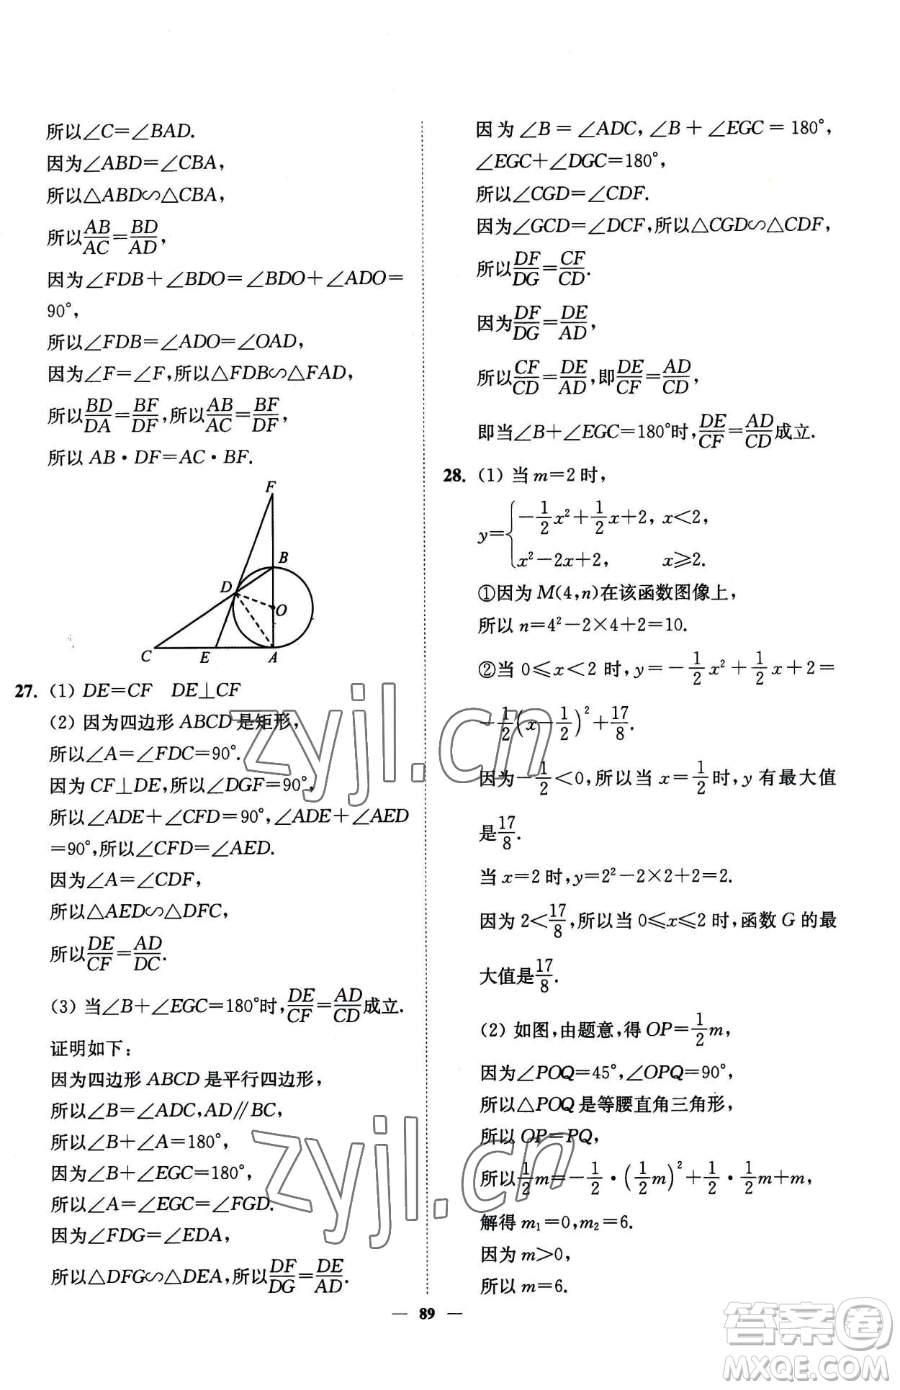 所以∠C=∠BAD.
因为∠ABD=∠CBA,
所以△ABD∽△CBA,
所以AB/AC=BD/AD,
因为∠FDB+∠BDO=∠BDO+∠ADO=
90°,
所以∠FDB=∠ADO=∠OAD,
因为∠F=∠F,所以△FDB∽△FAD,
所以BD/DA=BF/DF,所以AB/AC=BF/DF,
所以 AB·DF=AC·BF.
F
B
D
O
C
E
A
27. (1) DE=CF DE⊥CF
(2) 因为四边形 ABCD 是矩形,
所以∠A=∠FDC=90°.
因为 CF⊥DE,所以∠DGF=90°,
所以∠ADE+∠CFD=90°,∠ADE+∠AED
=90°,所以∠CFD=∠AED.
因为∠A=∠CDF,
所以△AED∽△DFC,
所以DE/CF=AD/DC.
(3) 当∠B+∠EGC=180°时,DE/CF=AD/CD成立.
证明如下:
因为四边形 ABCD 是平行四边形,
所以∠B=∠ADC,AD∥BC,
所以∠B+∠A=180°,
因为∠B+∠EGC=180°,
所以∠A=∠EGC=∠FGD.
因为∠FDG=∠EDA,
所以△DFG∽△DEA,所以DF/DG=DE/AD.
因为∠B=∠ADC,∠B+∠EGC=180°,
∠EGC+∠DGC=180°,
所以∠CGD=∠CDF.
因为∠GCD=∠DCF,所以△CGD∽△CDF,
所以DF/DG=CF/CD.
因为DF/DG=DE/AD,
所以CF/CD=DE/AD,即DE/CF=AD/CD,
即当∠B+∠EGC=180°时,DE/CF=AD/CD成立.
28. (1) 当 m=2 时,
y={-1/2x²+1/2x+2, x<2,
x²-2x+2, x≥2.
①因为 M(4,n)在该函数图像上,
所以 n=4²-2×4+2=10.
②当 0≤x<2 时,y=-1/2x²+1/2x+2=
-1/2(x-1/2)²+17/8.
因为-1/2<0,所以当 x=1/2时,y 有最大值
是17/8.
当 x=2 时,y=2²-2×2+2=2.
因为 2<17/8,所以当 0≤x≤2 时,函数 G 的最
大值是17/8.
(2) 如图,由题意,得 OP=1/2m,
因为∠POQ=45°,∠OPQ=90°,
所以△POQ 是等腰直角三角形,
所以 OP=PQ,
所以1/2m=-1/2·(1/2m)²+1/2·1/2m+m,
解得 m₁=0,m₂=6.
因为 m>0,
所以 m=6.
— 89 —
zyjl.cn
zyjl.cn
答案圈
MXQE.COM